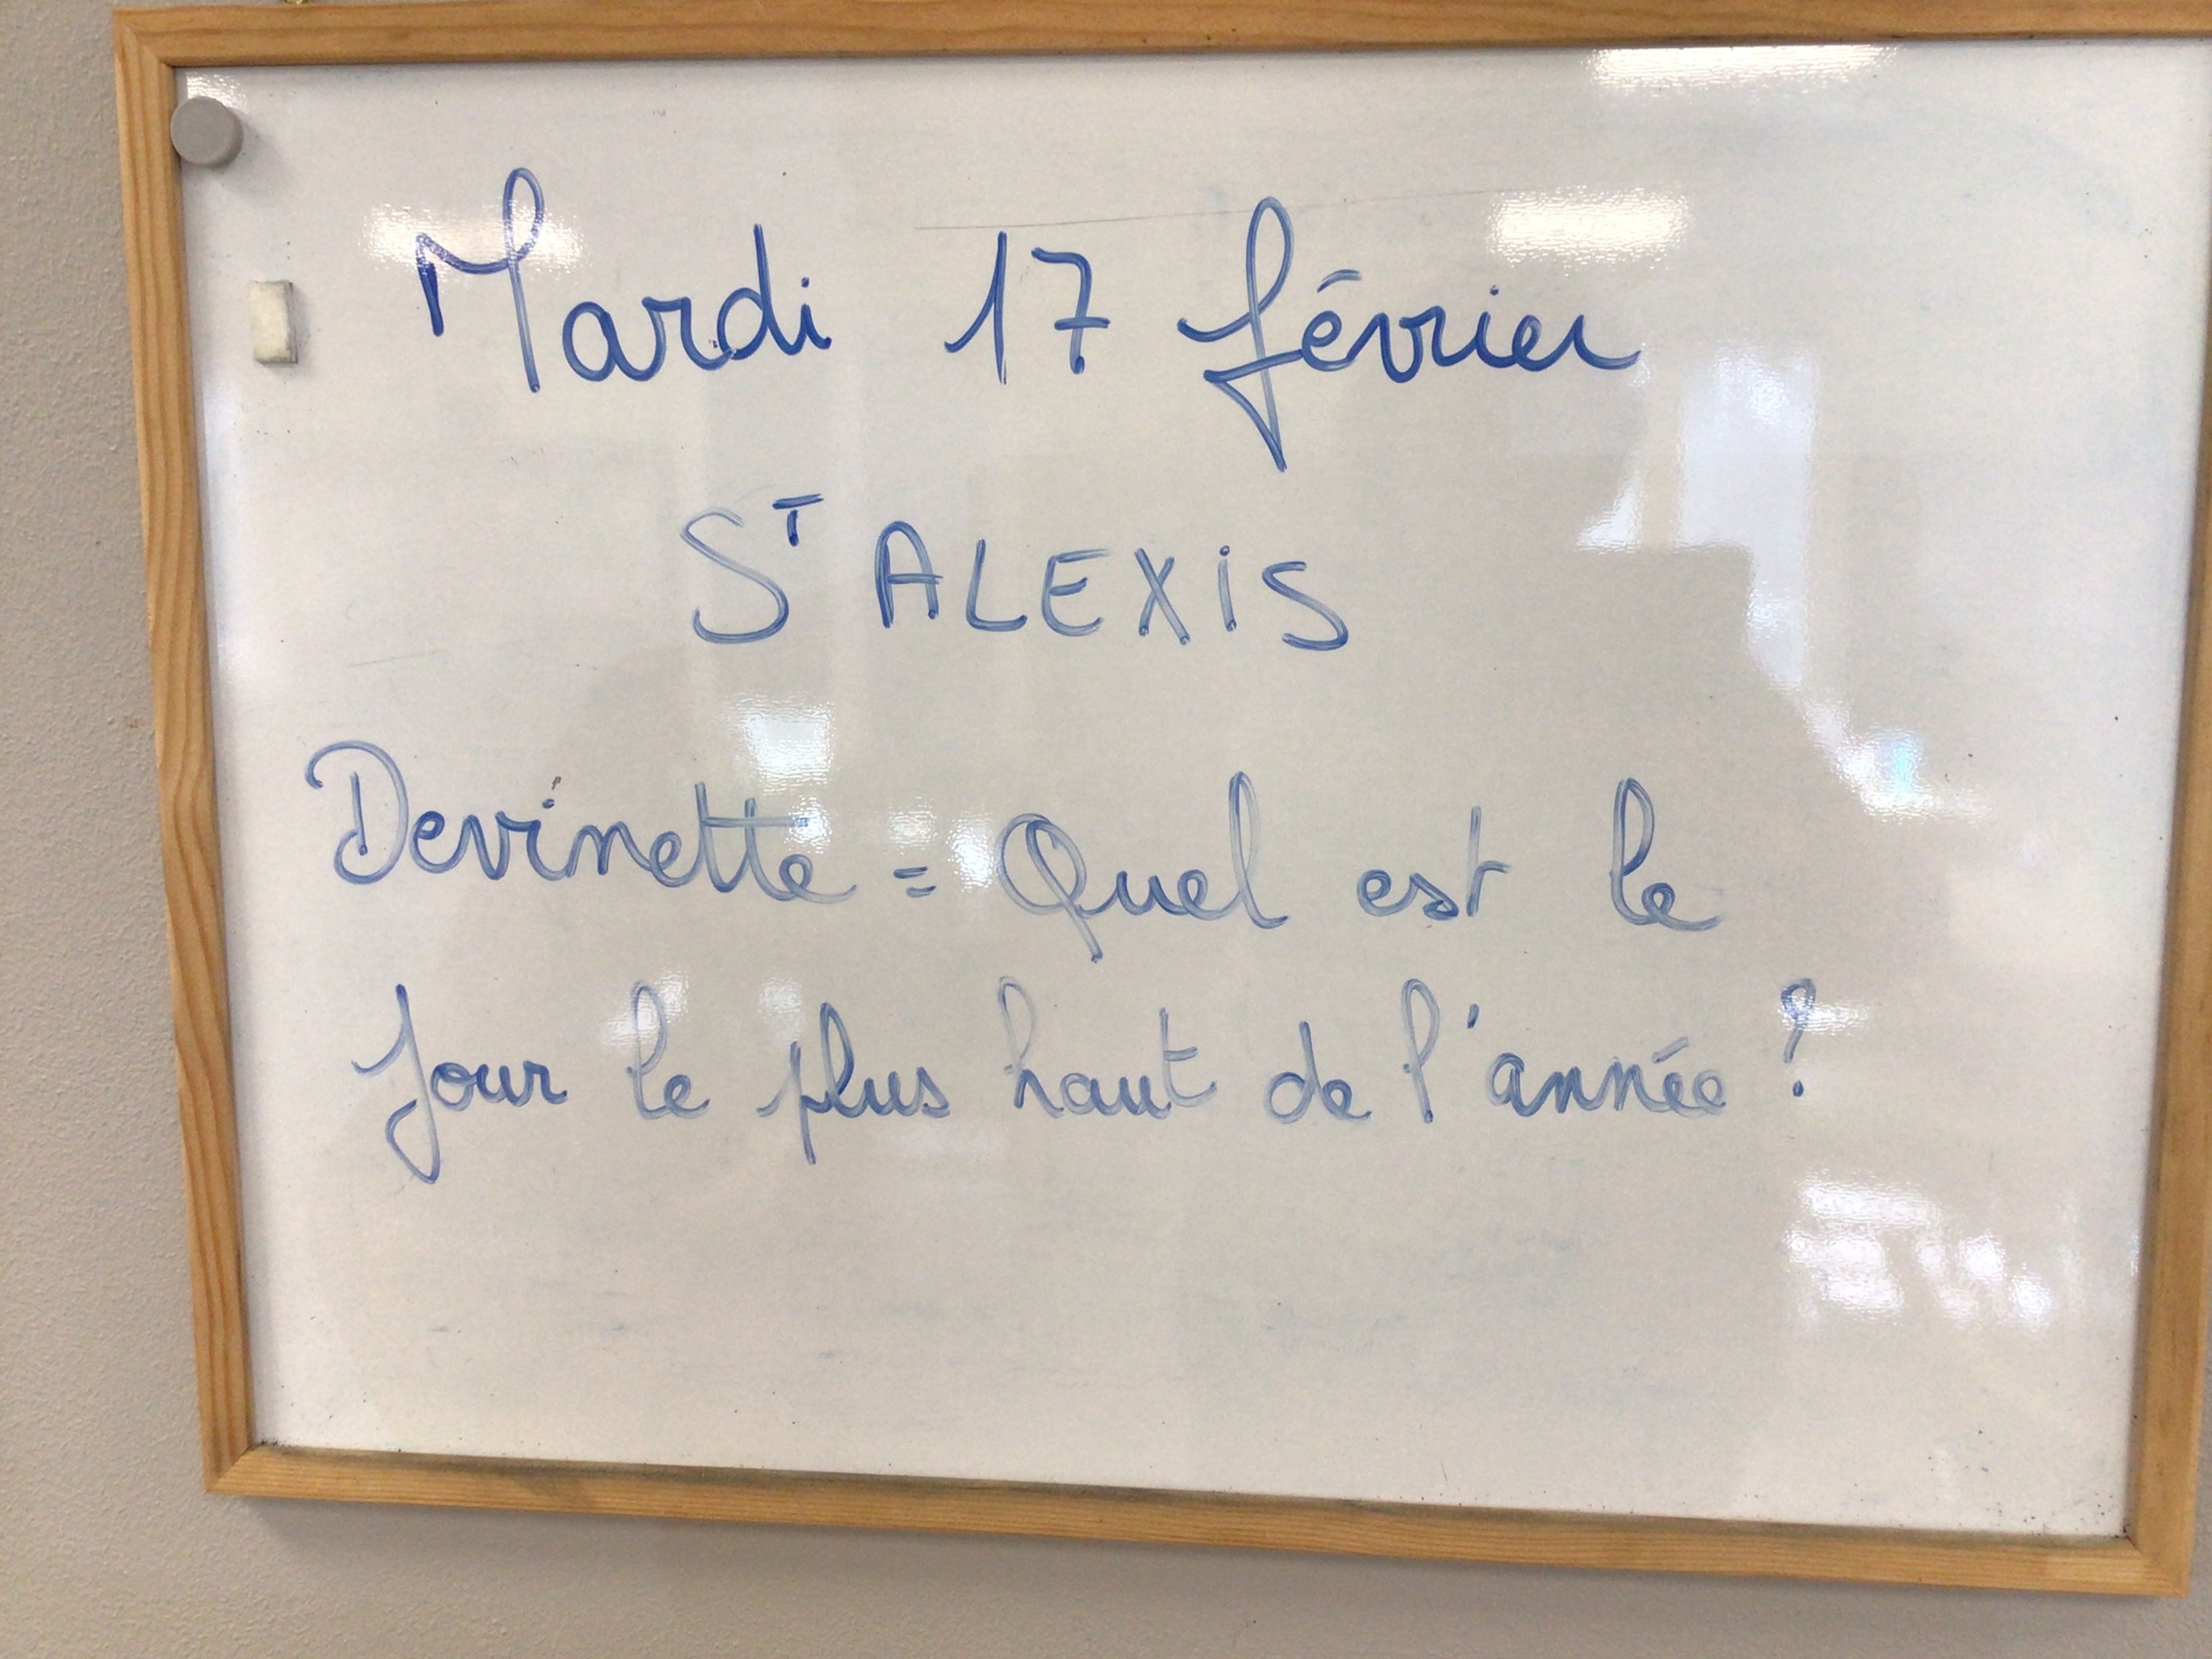 Mardi 17 février
ST ALEXiS
Devinette = Quel est le
Jour le plus haut de l'année ?